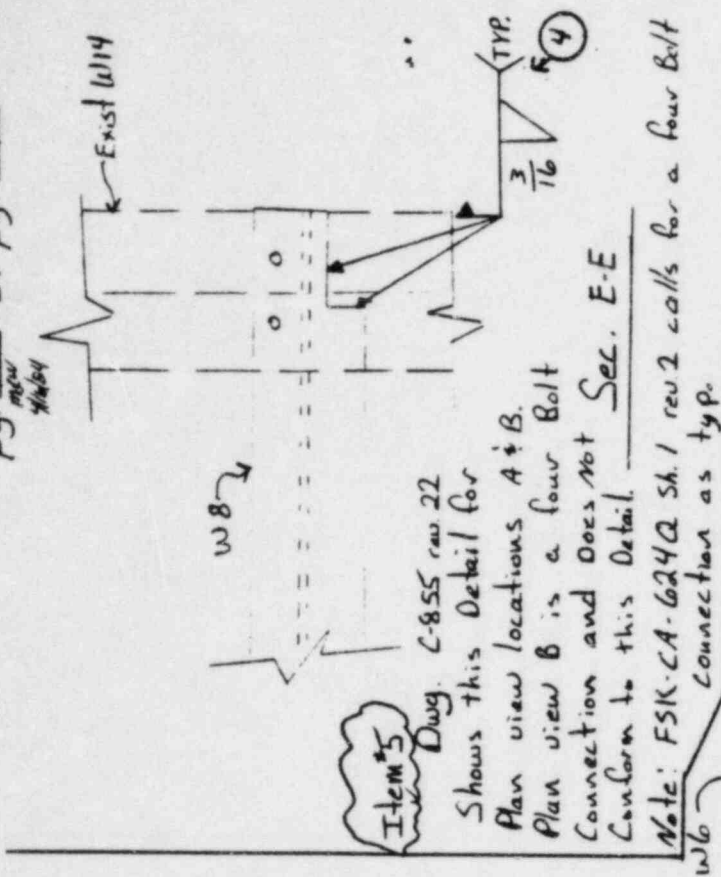 mew
4/16/84
Exist W14
W8
TYP.
3/16
4
Item #5
Dwg. C-855 rev. 22
Shows this Detail for
Plan view locations A & B.
Plan view B is a four Bolt
Connection and Does Not
Conform to this Detail.
Sec. E-E
Note: FSK-CA-624Q Sh. 1 rev 2 calls for a four Bolt
connection as typ.
W6